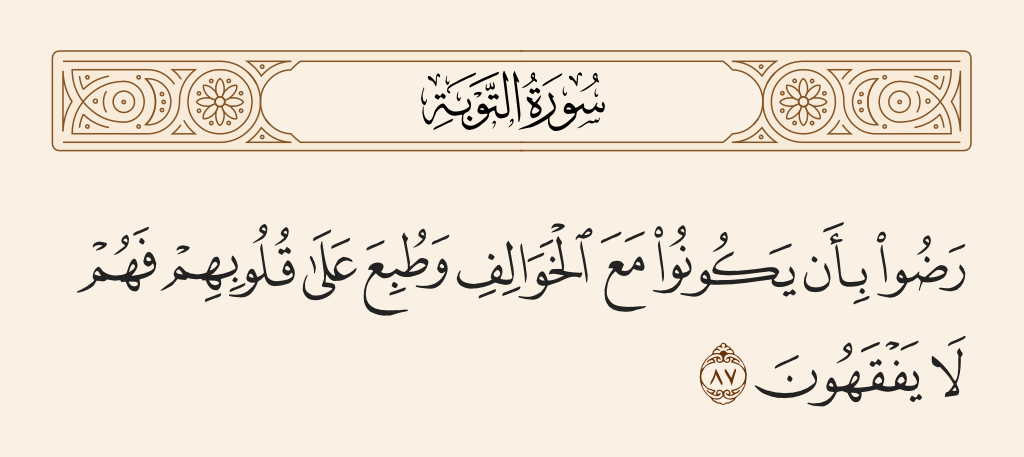 سُورَةُ التَّوْبَةِ
رَضُوا۟ بِأَن يَكُونُوا۟ مَعَ ٱلْخَوَالِفِ وَطُبِعَ عَلَىٰ قُلُوبِهِمْ فَهُمْ
لَا يَفْقَهُونَ ٨٧